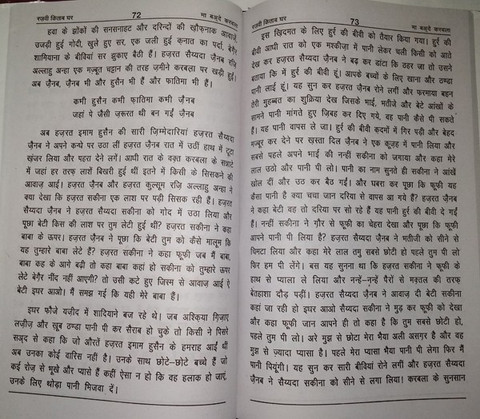 रज़वी किताब घर 72 मा बअ्दे करबला
हवा के झोंकों की सनसनाहट और दरिन्दों की ख़ौफ़नाक आवाज़ें
उजड़ी हुई गोदी, खुले हुए सर, एक जली हुई क़नात का पर्दा, बेग़ैर
शामियाना के बीवियां सर झुकाए बैठी हैं। हज़रत सय्यदा ज़ैनब रज़ि
अल्लाहु अन्हा एक मज़बूत चट्टान की तरह ज़मीने करबला पर खड़ी हुईं।
अब ज़ैनब, ज़ैनब भी और हुसैन भी हैं और फ़ातिमा भी हैं।
कभी हुसैन कभी फ़ातिमा कभी ज़ैनब
जहां पे जैसी ज़रूरत थी बन गईं ज़ैनब
अब हज़रत इमाम हुसैन की सारी ज़िम्मेदारियां हज़रत सैय्यदा
ज़ैनब ने अपने कन्धे पर उठा लीं हज़रत ज़ैनब रात में उठीं हाथ में टूटा
खंजर लिया और पहरा देने लगीं। आधी रात के वक़्त करबला के सन्नाटे
में जहां हर तरफ़ लाशें बिखरी हुई थीं इतने में किसी के सिसकने की
आवाज़ आई। हज़रत ज़ैनब और हज़रत कुल्सूम रज़ि अल्लाहु अन्हा ने
क्या देखा कि हज़रत सकीना एक लाश पर पड़ी सिसक रही हैं। हज़रत
सैय्यदा ज़ैनब ने सैय्यदा सकीना को गोद में उठा लिया और
पूछा बेटी किस की लाश पर तुम लेटी हुई थीं? हज़रत सकीना ने कहा
बाबा के ऊपर। हज़रत ज़ैनब ने पूछा कि बेटी तुम को कैसे मालूम कि
यह तुम्हारे बाबा लेटे हैं? हज़रत सकीना ने कहा फूफी जब मैं बाबा,
बाबा कह के आगे बढ़ी तो कहा बाबा कहां हो सकीना को तुम्हारे ऊपर
लेटे बेग़ैर नींद नहीं आएगी? तो उसी कटे हुए जिस्म से आवाज़ आई ऐ
बेटी इधर आओ। मैं समझ गई कि यही मेरे बाबा हैं।
इधर फ़ौजे यज़ीद में शादियाने बज रहे थे। जब अश्क़िया ग़िज़ाए
लज़ीज़ और ख़ूब ठण्डा पानी पी कर सैराब हो चुके तो किसी ने पिसरे
सअ्द से कहा कि जो औरतें हज़रत इमाम हुसैन के हमराह आई थीं
अब उनका कोई वारिस नहीं है। उनके साथ छोटे-छोटे बच्चे हैं जो
कई रोज़ से भूखे और प्यासे हैं कहीं ऐसा न हो कि वह हलाक हो जाएं,
उनके लिए थोड़ा पानी भिजवा दें।
रज़वी किताब घर 73 मा बअ्दे करबला
इस ख़िदमत के लिए हुर की बीवी को तैयार किया गया। हुर की
बीवी आधी रात को एक मश्कीज़ा में पानी लेकर चली किसी को आते
देख कर हज़रत सैय्यदा ज़ैनब ने बढ़ कर डांटा कि ठहर जा तो उसने
बताया कि मैं हुर की बीवी हूं। आपके बच्चों के लिए खाना और ठण्डा
पानी लाई हूं। यह सुन कर हज़रत ज़ैनब रोने लगीं और फ़रमाया बहन
तेरी मुहब्बत का शुक्रिया देख जिसके भाई, भतीजे और बेटे आंखों के
सामने पानी मांगते हुए ज़िबह कर दिए गये, वह पानी कैसे पी सकते
हैं। यह पानी वापस ले जा। हुर की बीवी कदमों में गिर पड़ी और बेहद
मजबूर कर देने पर ख़स्ता दिल ज़ैनब ने एक कूज़ह में पानी लिया और
सबसे पहले अपने भाई की नन्हीं सकीना को जगाया और कहा मेरे
लाल उठो और पानी पी लो। पानी का नाम सुनते ही सकीना ने आंखें
खोल दीं और उठ कर बैठ गईं। और घबरा कर पूछा कि फूफी यह
कैसा पानी है क्या चचा जान दरिया से वापस आ गये हैं? हज़रत ज़ैनब
ने कहा बेटी वह तो दरिया पर सो रहे हैं यह पानी हुर की बीवी दे गई
हैं। नन्हीं सकीना ने ग़ौर से फूफी का चेहरा देखा और पूछा कि फूफी
आपने पानी पी लिया है? हज़रत सैय्यदा ज़ैनब ने भतीजी को सीने से
चिमटा लिया और कहा मेरे लाल तुम सबसे छोटी हो पहले तुम पी लो
फिर हम पी लेंगे। बस यह सुनना था कि हज़रत सकीना ने फूफी के
हाथ से प्याला ले लिया और नन्हे-नन्हें पैरों से मक़्तल की तरफ़
बेतहाशा दौड़ पड़ीं। हज़रत सैय्यदा ज़ैनब ने आवाज़ दी बेटी सकीना
कहां जा रही हो इधर आओ सकीना ने मुड़ कर फूफी को देखा
और कहा फूफी जान आपने ही तो कहा है कि तुम सबसे छोटी हो,
पहले तुम पी लो। अरे मुझ से छोटा मेरा भैया अली असग़र है और वह
मुझ से ज़्यादा प्यासा है। पहले मेरा प्यासा भैया पानी पी लेगा फिर मैं
पानी पियूंगी। यह सुन कर सारी बीवियां रोने लगीं और हज़रत सैय्यदा
ज़ैनब ने सैय्यदा सकीना को सीने से लगा लिया। करबला के सुनसान